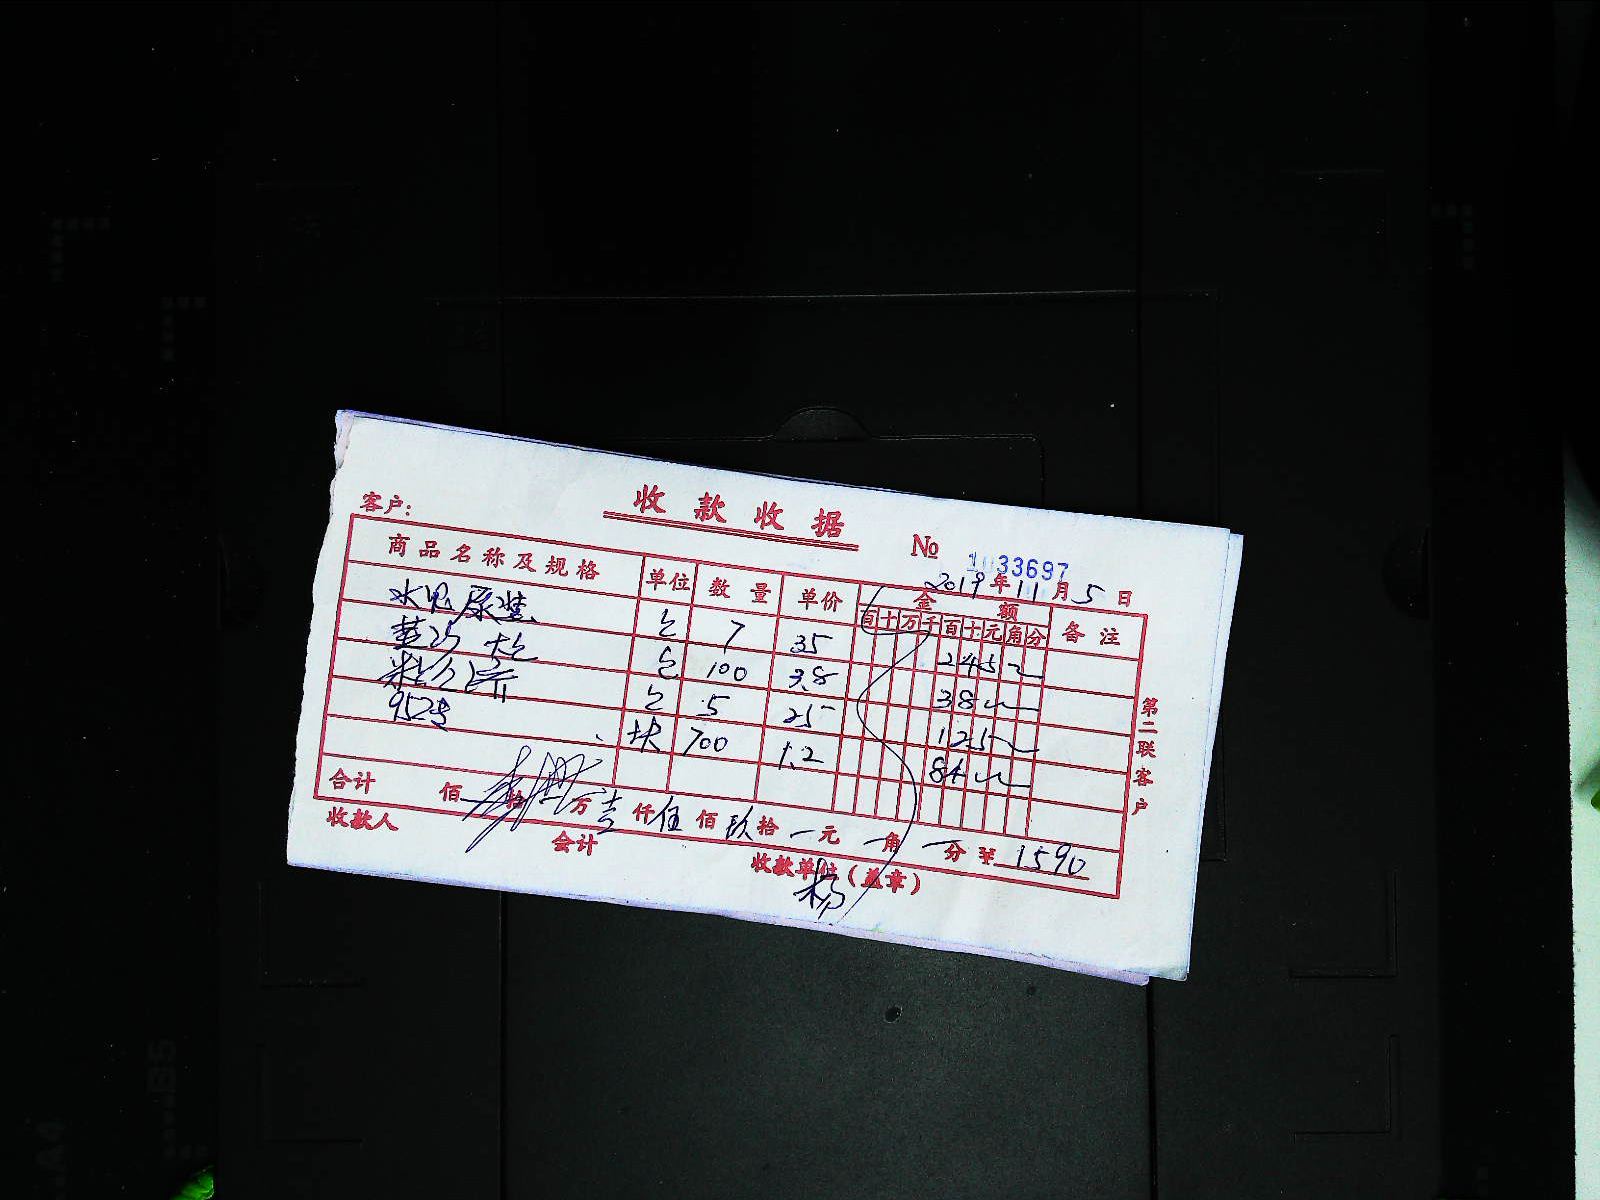 收款收据
客户:
№ 1033697
2019年11月5日
商品名称及规格 单位 数量 单价 金额 备注
百十万千百十元角分
水泥 原装 包 7 35 245
黄沙 大包 包 100 3.8 38
包 5 25 125
95砖 块 700 1.2 84
合计 佰 拾 万 壹仟伍佰玖拾 元 角 分 ¥ 1590
收款人 会计 收款单位(盖章)
杨
第二联客户